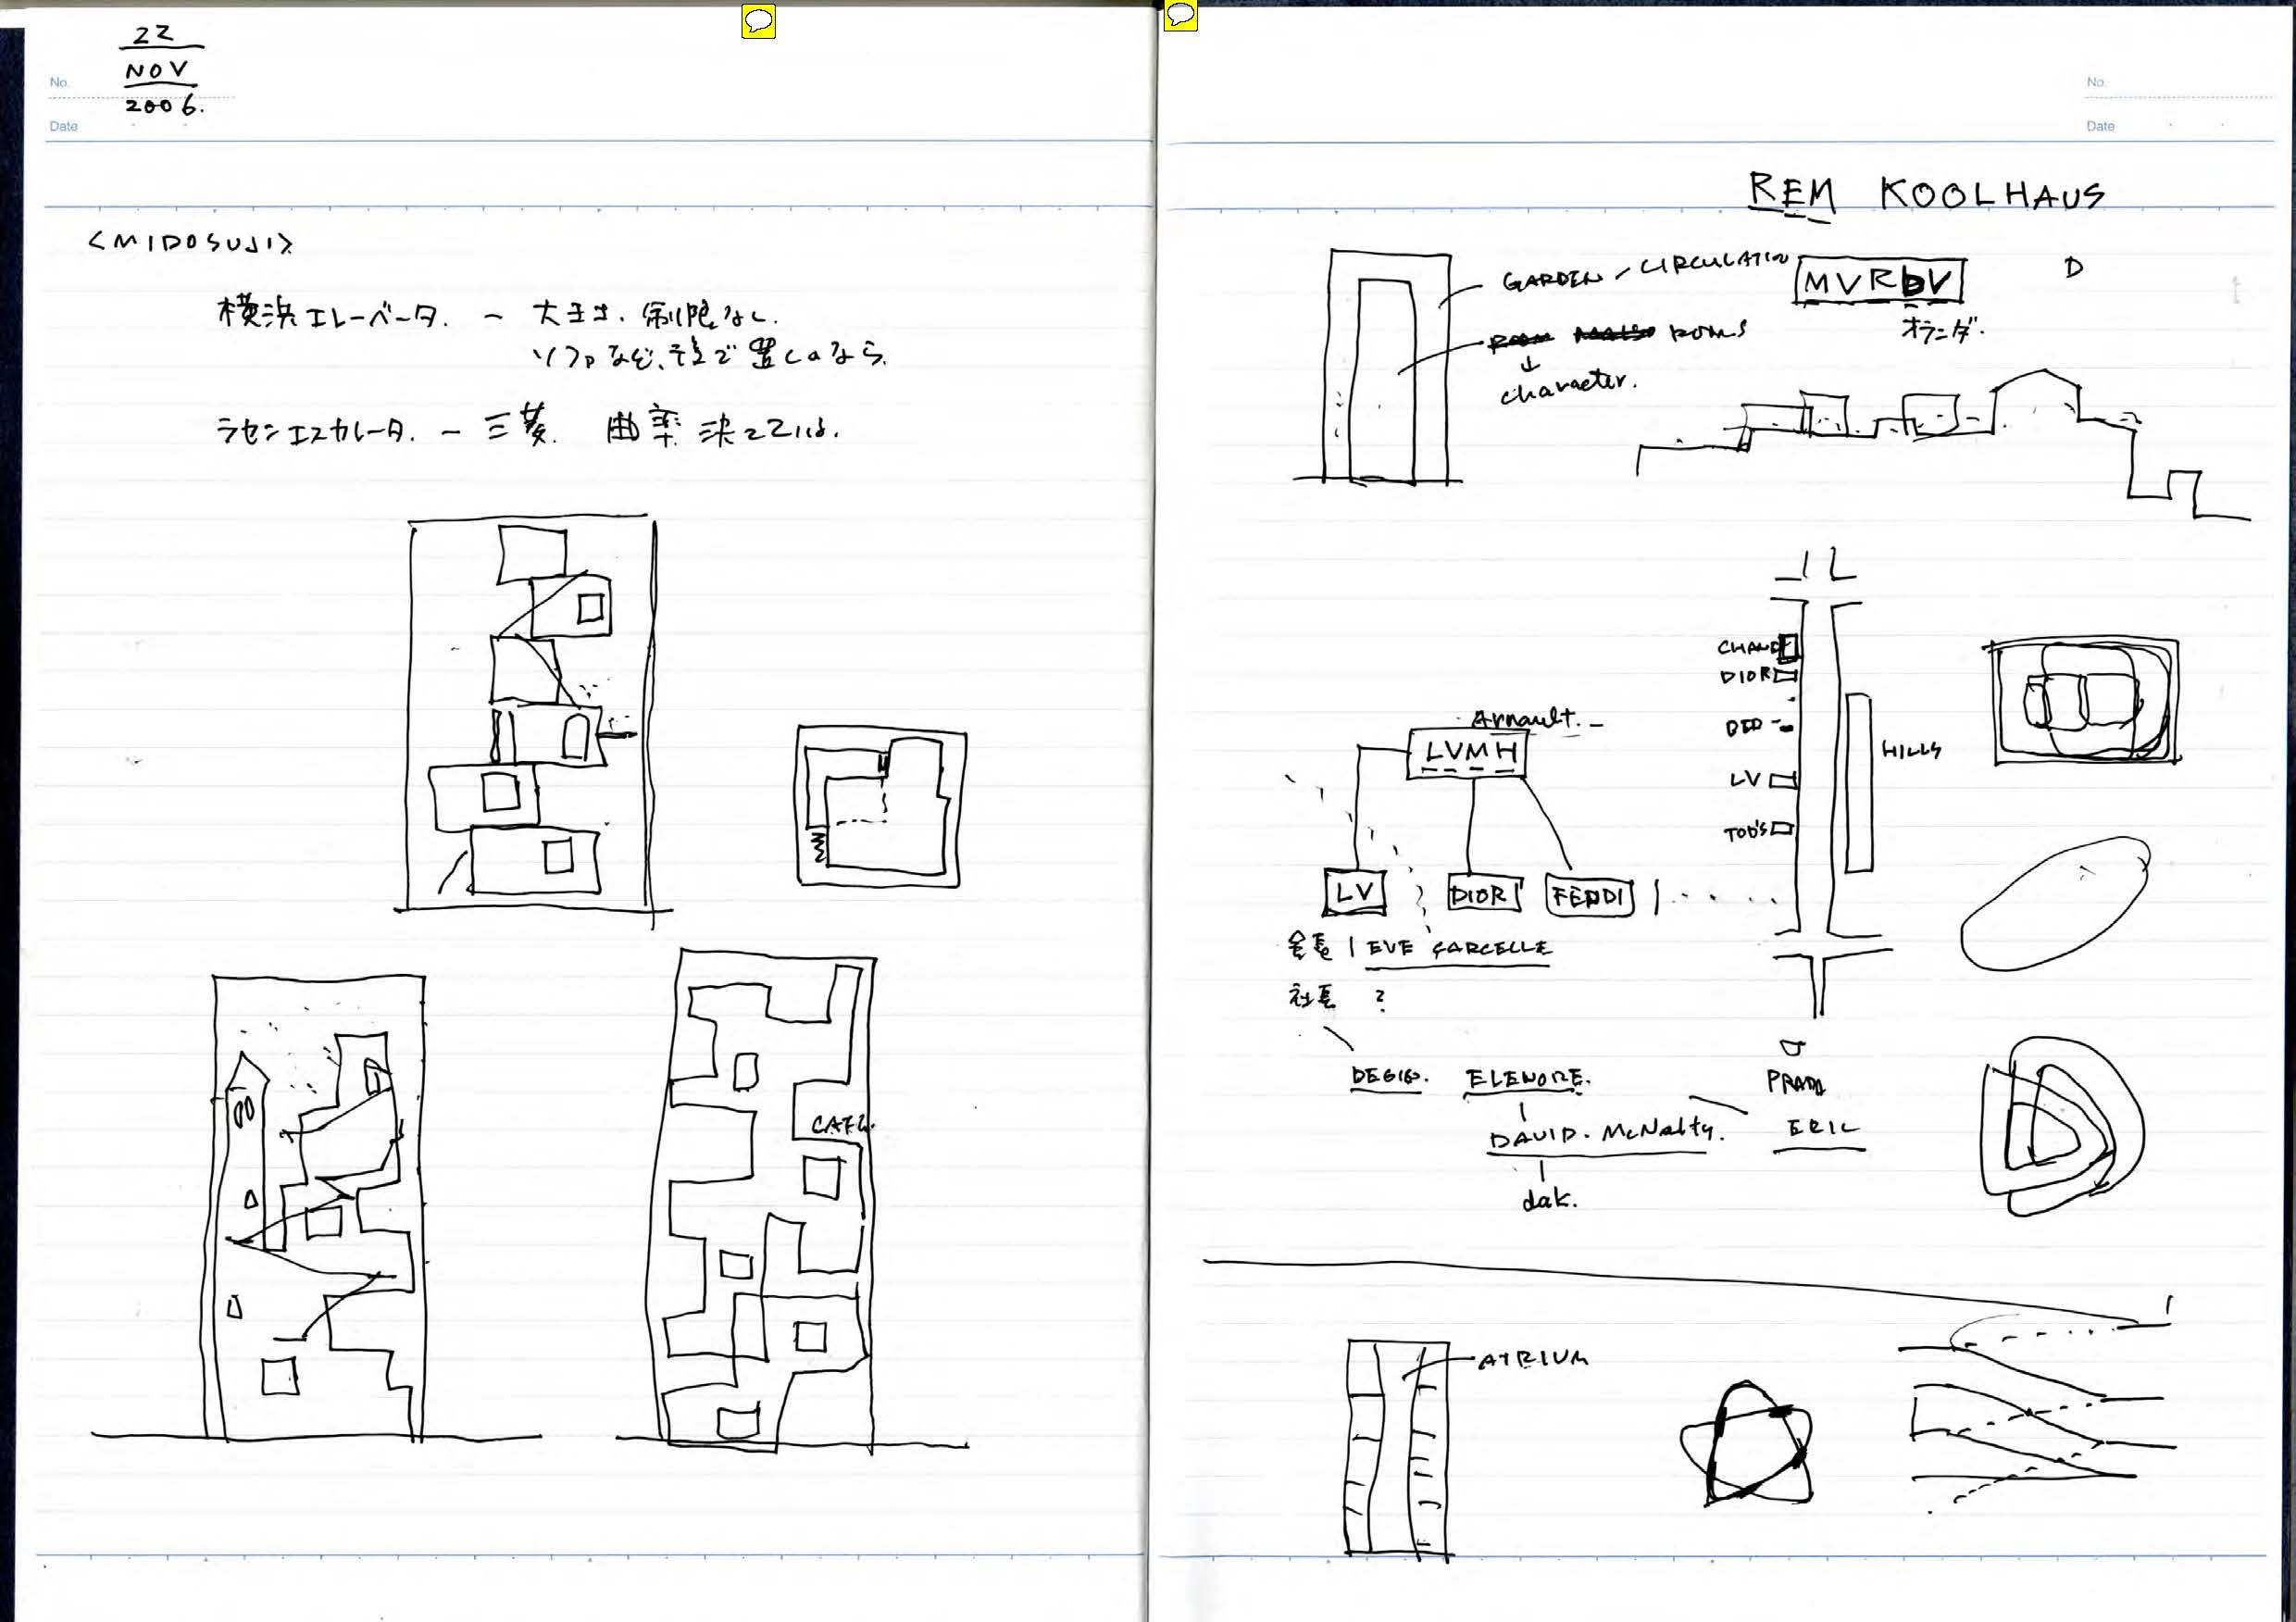 22
NOV
2006.
No.
Date
<MIDOSUJI>
横浜エレベータ. ー 大きさ、制限なし.
ソファなど、後で置くのなら.
ラセンエスカレータ. ー 三菱. 曲率 決っている.
CAFE.
No.
Date
REM KOOLHAUS
GARDEN / CIRCULATION
ROOMS
character.
MVRDV
D
オランダ.
CHANEL
DIOR
LV
TOD'S
HILLS
PRADA
Arnault.
LVMH
LV
DIOR
FENDI
会長 | EVE CARCELLE
社長 ?
DESIGN. ELENORE. ERIC
DAVID. McNulty.
dak.
ATRIUM